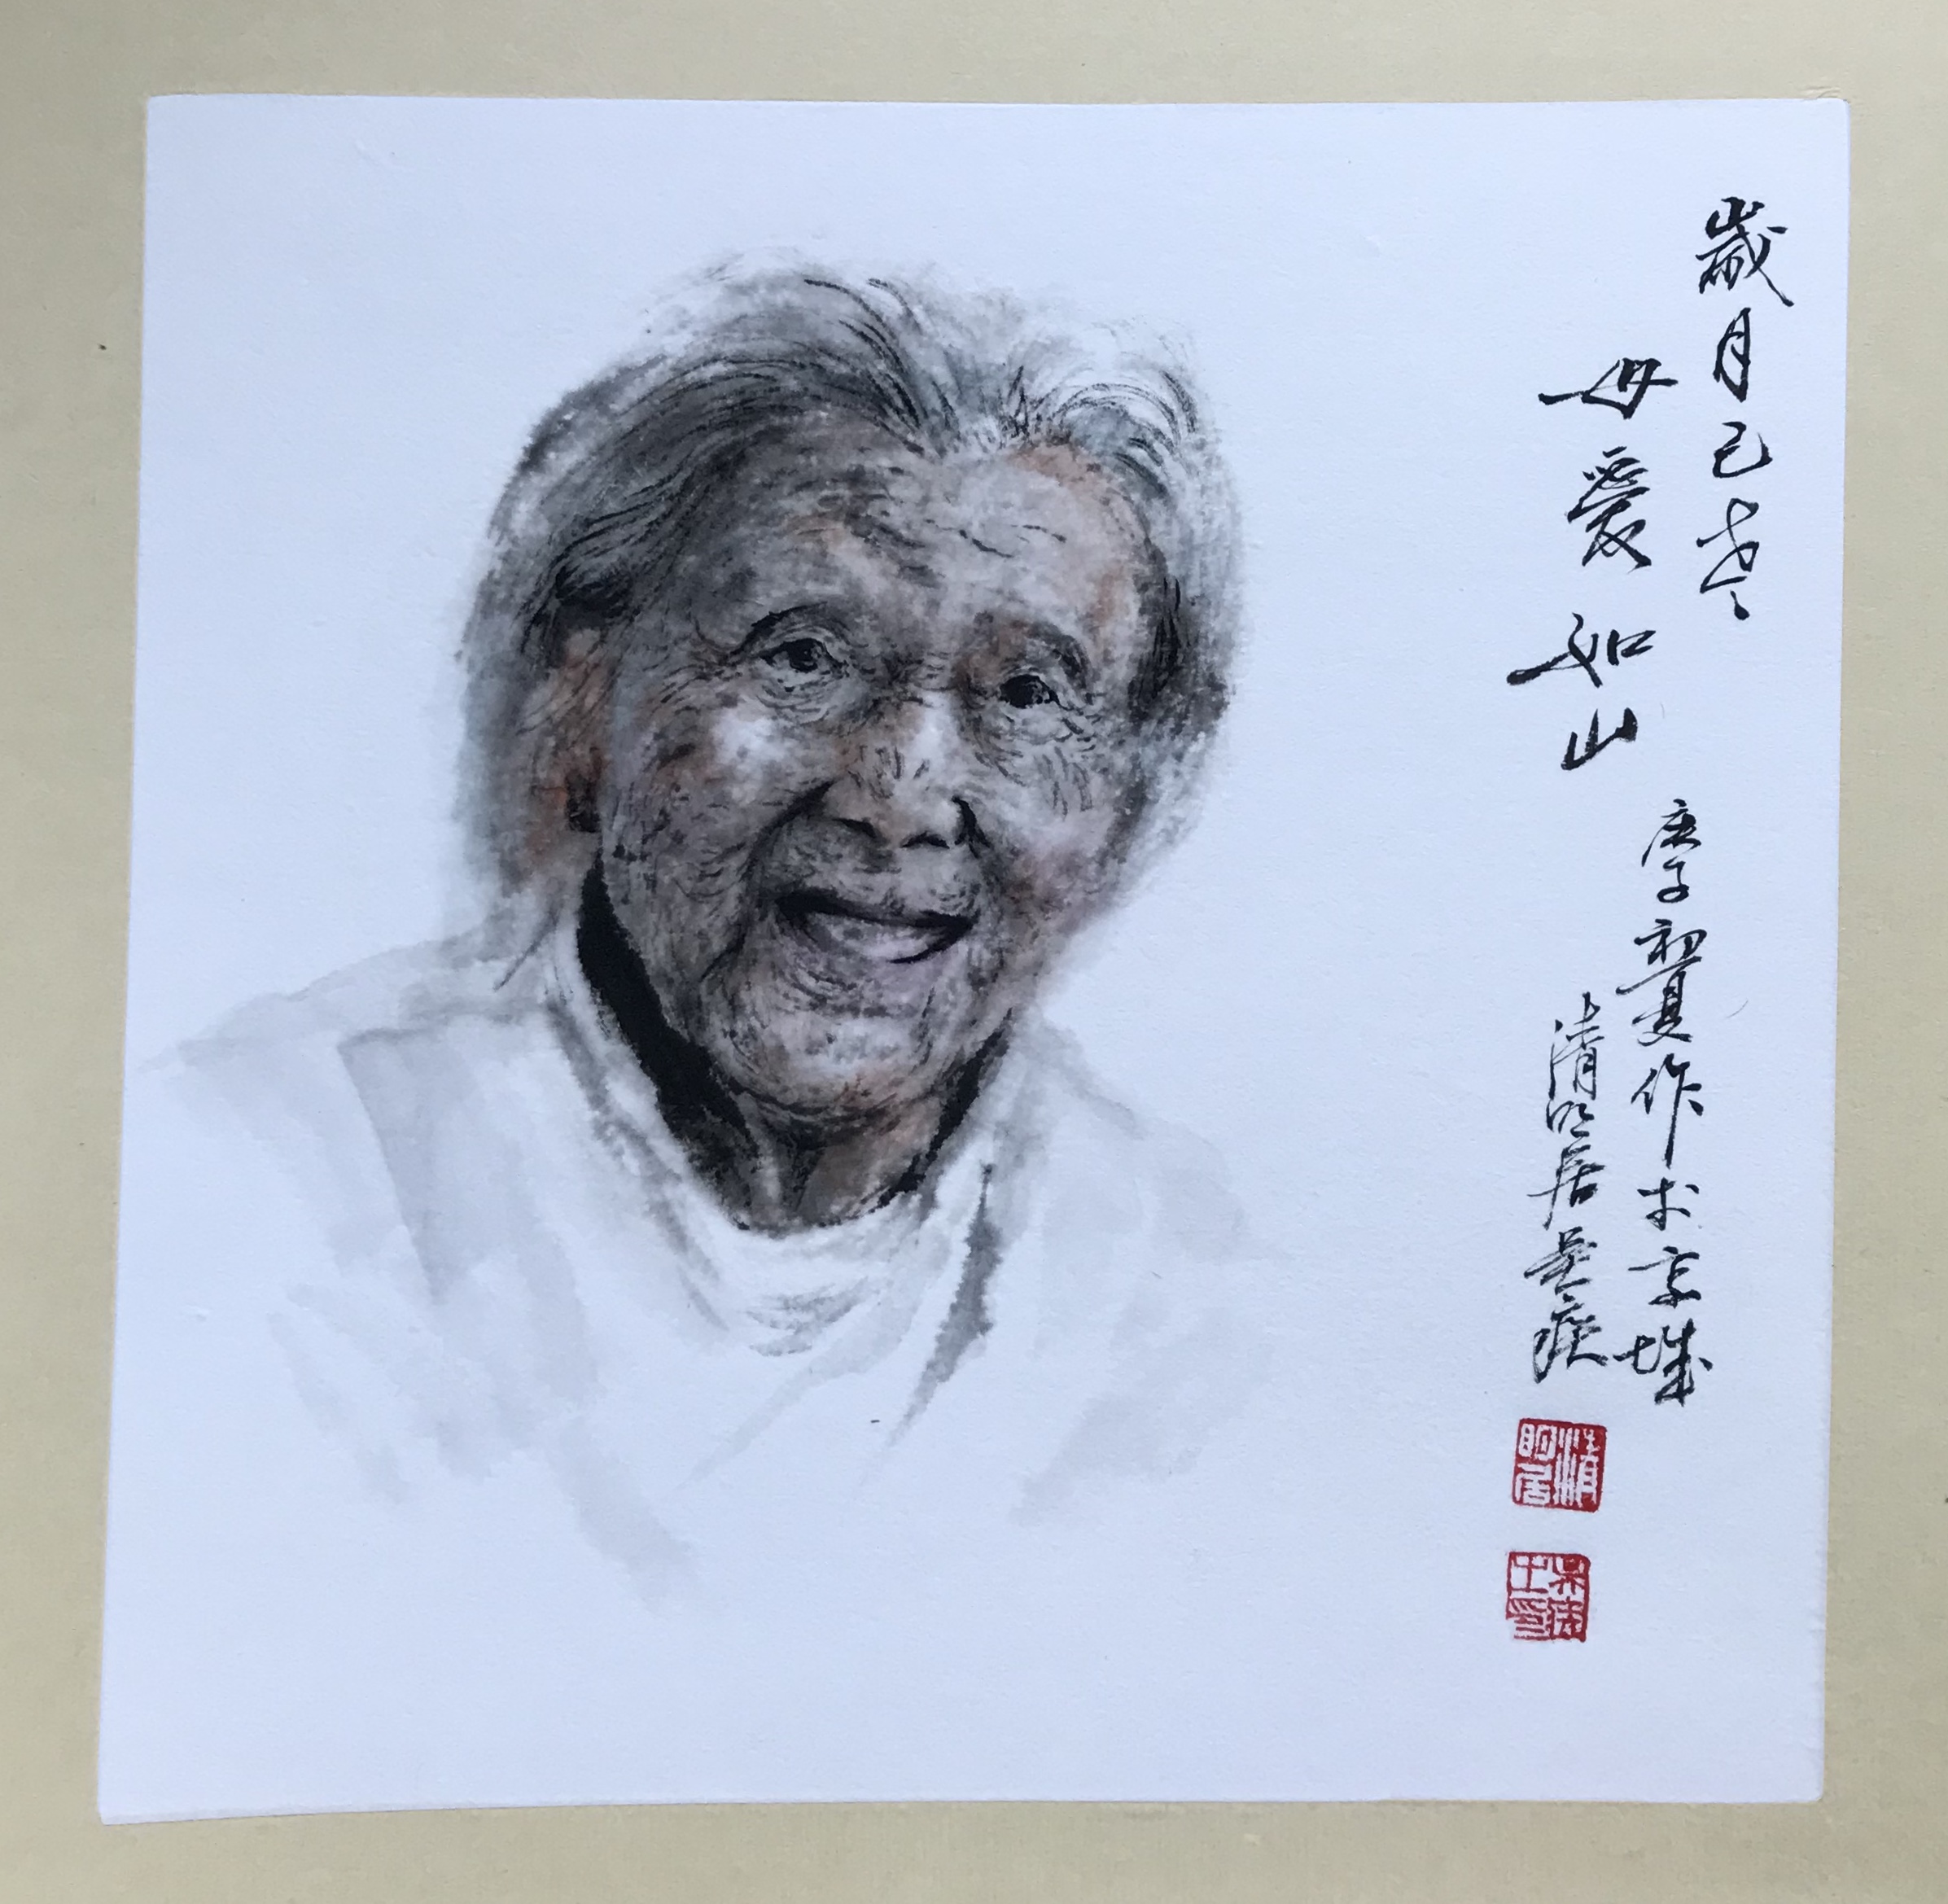 歲月已老
母愛如山
庚子初夏作於京城
清明居吳疾
清明居
吳疾
士印